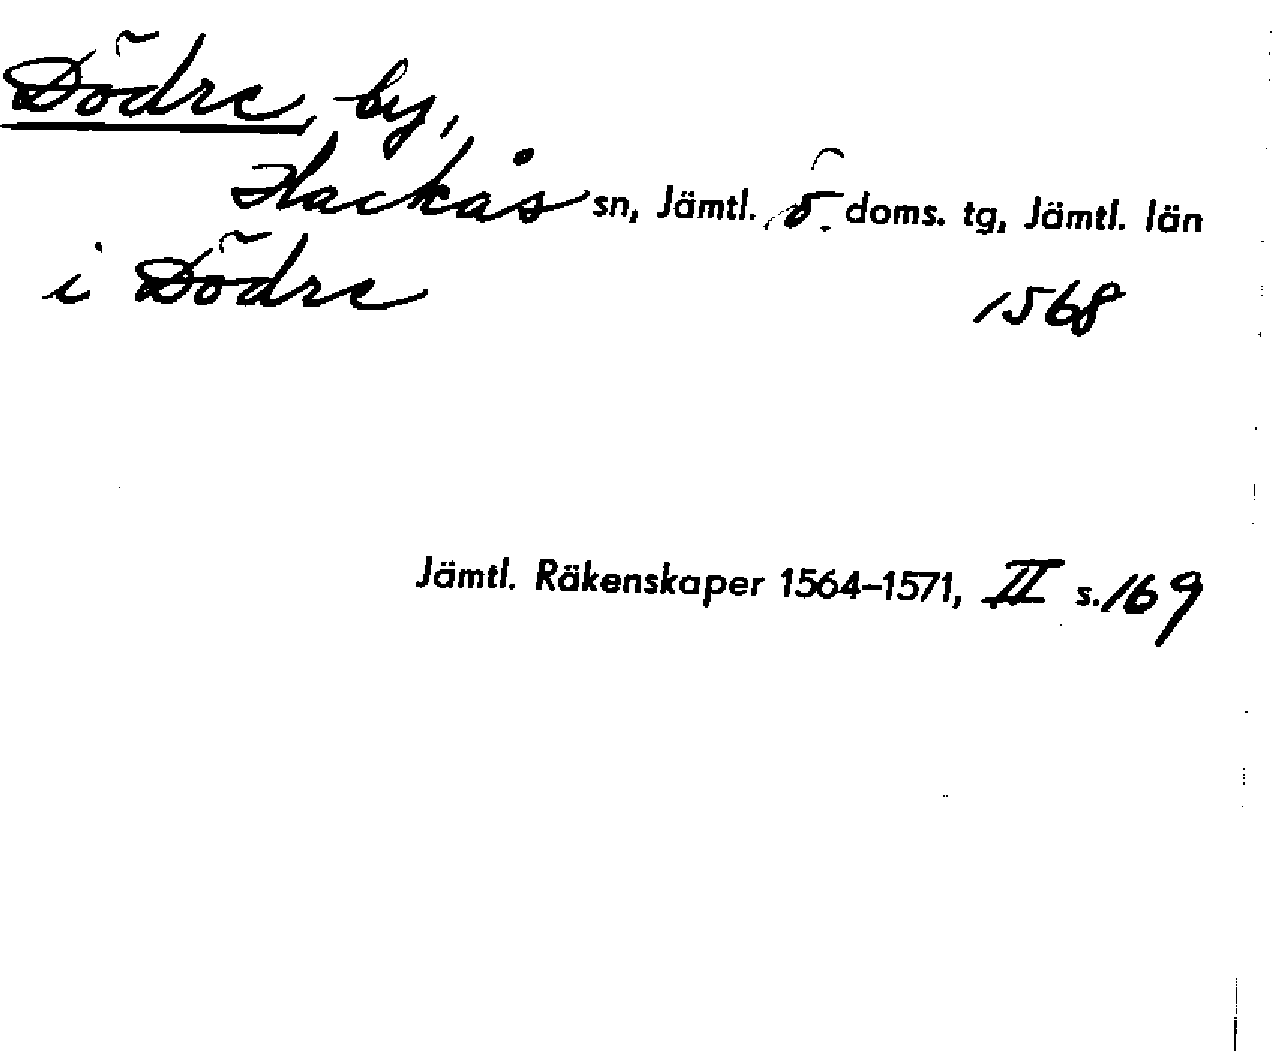 Dödre, by,
Hackås sn, Jämtl. ö. doms. tg, Jämtl. län
i Dödre 1568
Jämtl. Räkenskaper 1564–1571, II s. 169